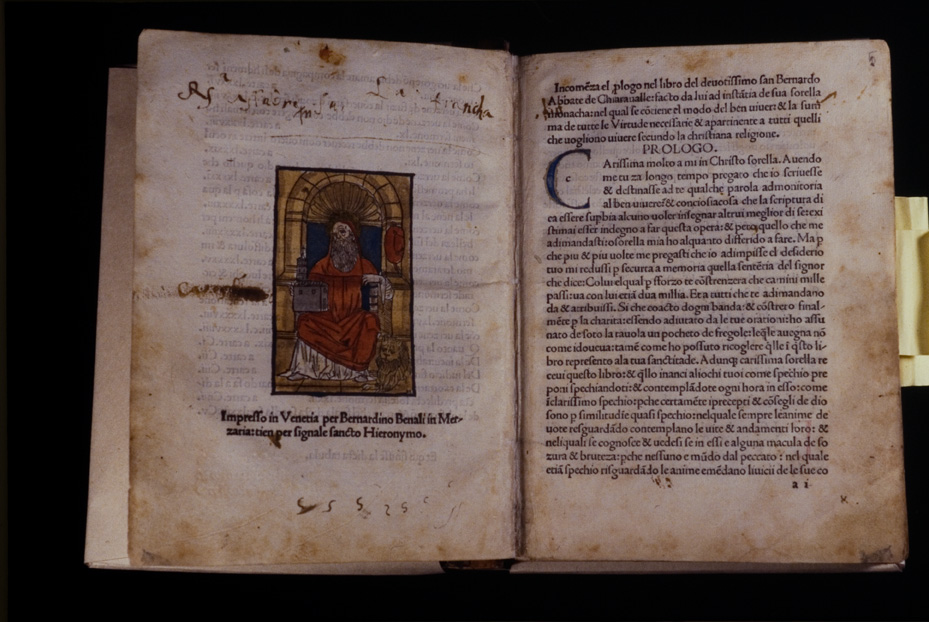 Impresso in Venetia per Bernardino Benali in Mer-
zaria: tien per signale sancto Hieronymo.
Incomēza el plogo nel libro del deuotissimo san Bernardo
Abbate de Chiaraualle: facto da lui ad instātia de sua sorella
monacha: nel qual se cōtiene el modo del ben uiuer: & la sum
ma de tutte le Virtude necessarie & apartinente a tutti quelli
che uogliono uiuere secundo la christiana religione.
PROLOGO.
C
c
Arissima molto a mi in Christo sorella. Auendo
me tu za longo tempo pregato che io scriuesse
& destinasse ad te qualche parola admonitoria
al ben uiuere: & conciosiacosa che la scriptura di
ca essere supbia alcuno uoler insegnar altrui meglior di se: exi
stimai esser indegno a far questa opera: & pero quello che me
adimandasti: o sorella mia ho alquanto differido a fare. Ma p
che piu & piu uolte me pregasti che io adimpisse el desiderio
tuo mi redussi p secura a memoria quella sentētia del signor
che dice: Colui el qual p sforzo te cōstrenzera che camini mille
passi: ua con lui etiā dua millia. Et a tutti che te adimandano
da & atribuissi. Si che coacto dogni banda: & cōstreto final-
mēte p la charita: essendo adiutato da le tue orationi: ho assu
nato de soto la tauola un pocheto de fregole: leqle auegna nō
come idoueua: tamē come ho possuto ricoglere qlle i qsto li-
bro represento a la tua sanctitade. Adunq carissima sorella re
ceui questo libro: & quello inanci aliochi tuoi come spechio pre
poni spechiandoti: & contemplādote ogni hora in esso: come
iclarissimo spechio: pche certamēte i precepti & cōsegli de dio
sono p similitudīe quasi spechio: nelquale sempre le anime de
uote resguardādo contemplano le uite & andamenti loro: &
neli quali se cognosce & uedesi se in essi e alguna macula de so
zura & bruteza: pche nessuno e mūdo dal peccato: nel quale
etiā spechio risguardādo le anime emēdano li uicii de le sue co
a i